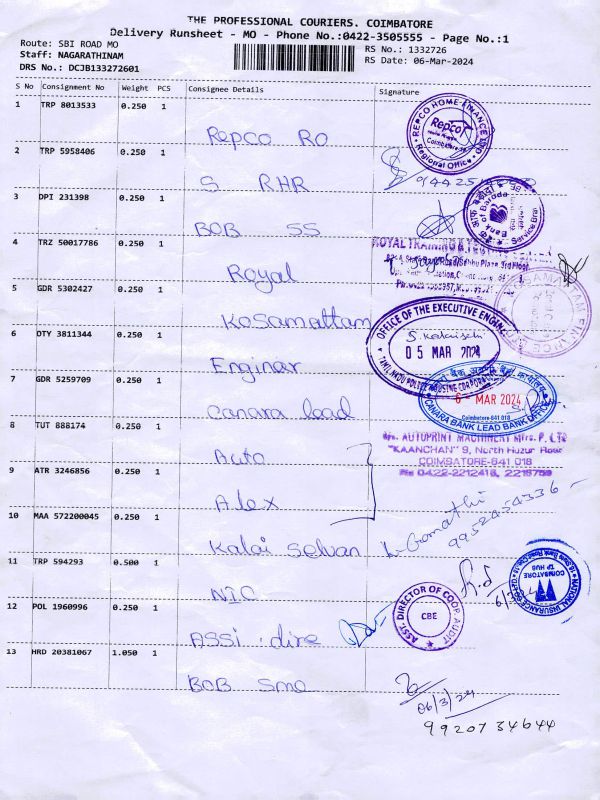 THE PROFESSIONAL COURIERS. COIMBATORE
Delivery Runsheet - MO - Phone No.:0422-3505555 - Page No.:1
Route: SBI ROAD MO
RS No.: 1332726
Staff: NAGARATHINAM
RS Date: 06-Mar-2024
DRS No.: DCJB133272601
S No Consignment No Weight PCS Consignee Details Signature
1 TRP 8013533 0.250 1
Repco RO
REPCO HOME FINANCE LTD
Repco
Coimbatore
Regional Office
2 TRP 5958406 0.250 1
S RHR
3 DPI 231398 0.250 1
BOB SS
Bank of Baroda
4 TRZ 50017786 0.250 1
Royal
ROYAL TRAINING &
5 GDR 5302427 0.250 1
Kosamattam
KOSAMATTAM FINANCE
6 DTY 3811344 0.250 1
Enginer
OFFICE OF THE EXECUTIVE ENGINEER
05 MAR 2024
7 GDR 5259709 0.250 1
Canara lead
6 - MAR 2024
Coimbatore-641 018
CANARA BANK LEAD BANK OFFICE
8 TUT 888174 0.250 1
Auto
AUTOPRINT MACHINERY Mfrs. P. LTD
"KAANCHAN" 9, North Huzur Road
COIMBATORE-641 018
9 ATR 3246856 0.250 1
Alex
10 MAA 572200045 0.250 1
Kalai Selvan
Gomathi
9952434336
11 TRP 594293 0.500 1
NIC
NATIONAL INSURANCE CO. LTD
COIMBATORE
TP HUB
12 POL 1960996 0.250 1
Assi . dire
ASST. DIRECTOR OF COOP. AUDIT
CBE
13 HRD 20381067 1.050 1
BOB Sme
06/3/24
9920734644